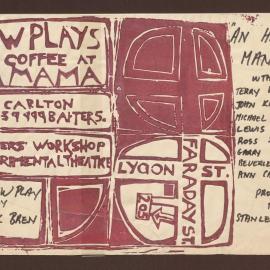 W PLAYS
COFFEE AT
AMAMA
CARLTON
BATTERS.
ERS WORKSHOP
RIMENTAL THEATRE
W PLAY
Y
BREN
LYGON ST.
FARADAY ST
205
"AN H
MAN
WITH
TERRY
JOHN K
MICHAEL
LEWIS
ROSS
GARRY
BEVERLEY
ANN CA
PRO
STANLE